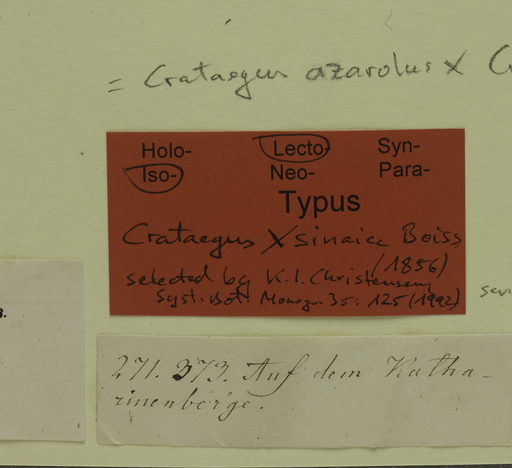 = Crataegus azarolus × C
Holo- Lecto- Syn-
Iso- Neo- Para-
Typus
Crataegus × sinaica Boiss
(1856)
selected by K.I. Christensen,
Syst. Bot. Monogr. 35: 125 (1992)
271. 373. Auf dem Katha-
rinenberge.